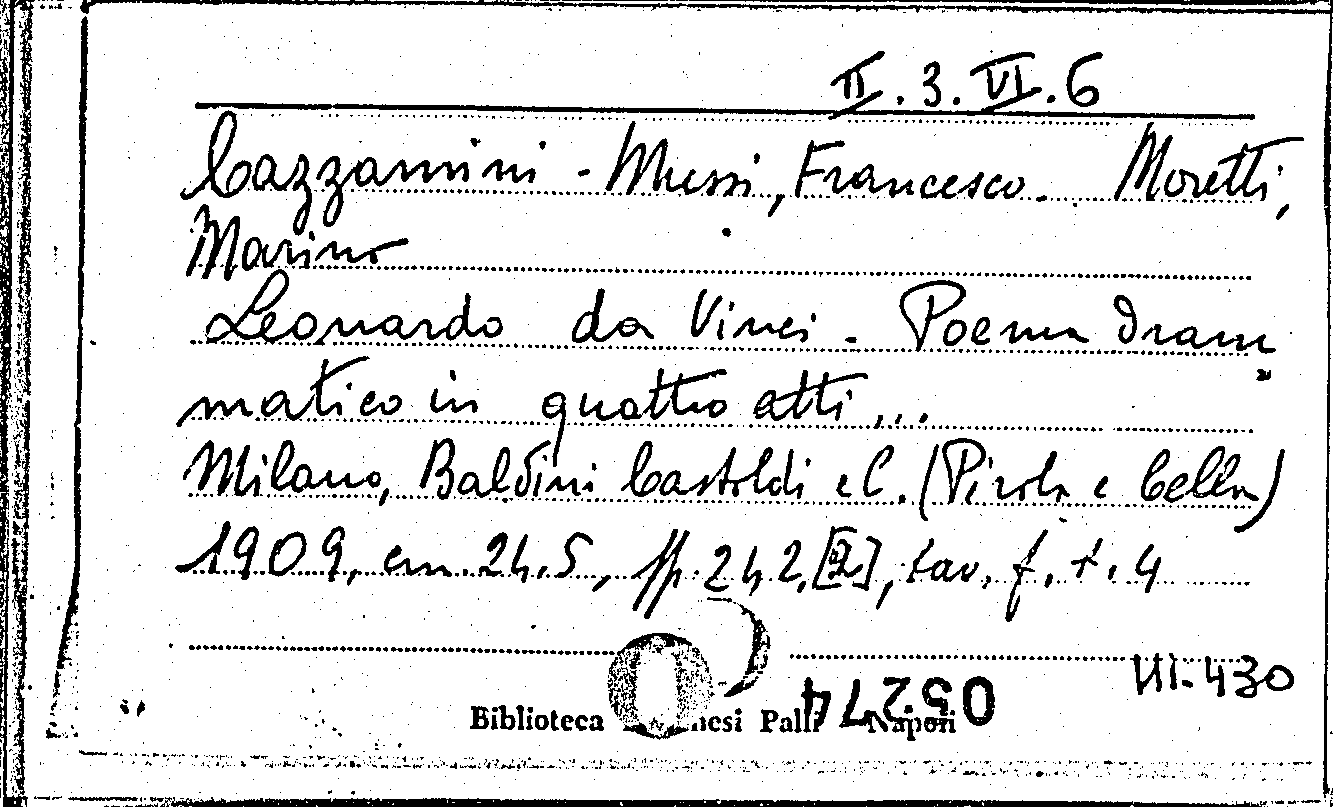 II.3.VI.6
Cazzamini-Mussi, Francesco. Moretti,
Marino
Leonardo da Vinci. Poema dram=
matico in quattro atti...
Milano, Baldini Castoldi e C. (Pirola e Cella)
1909, cm. 24.5, pp. 242, [2], tav. f. t. 4
III.430
052274
Biblioteca Palli Napoli